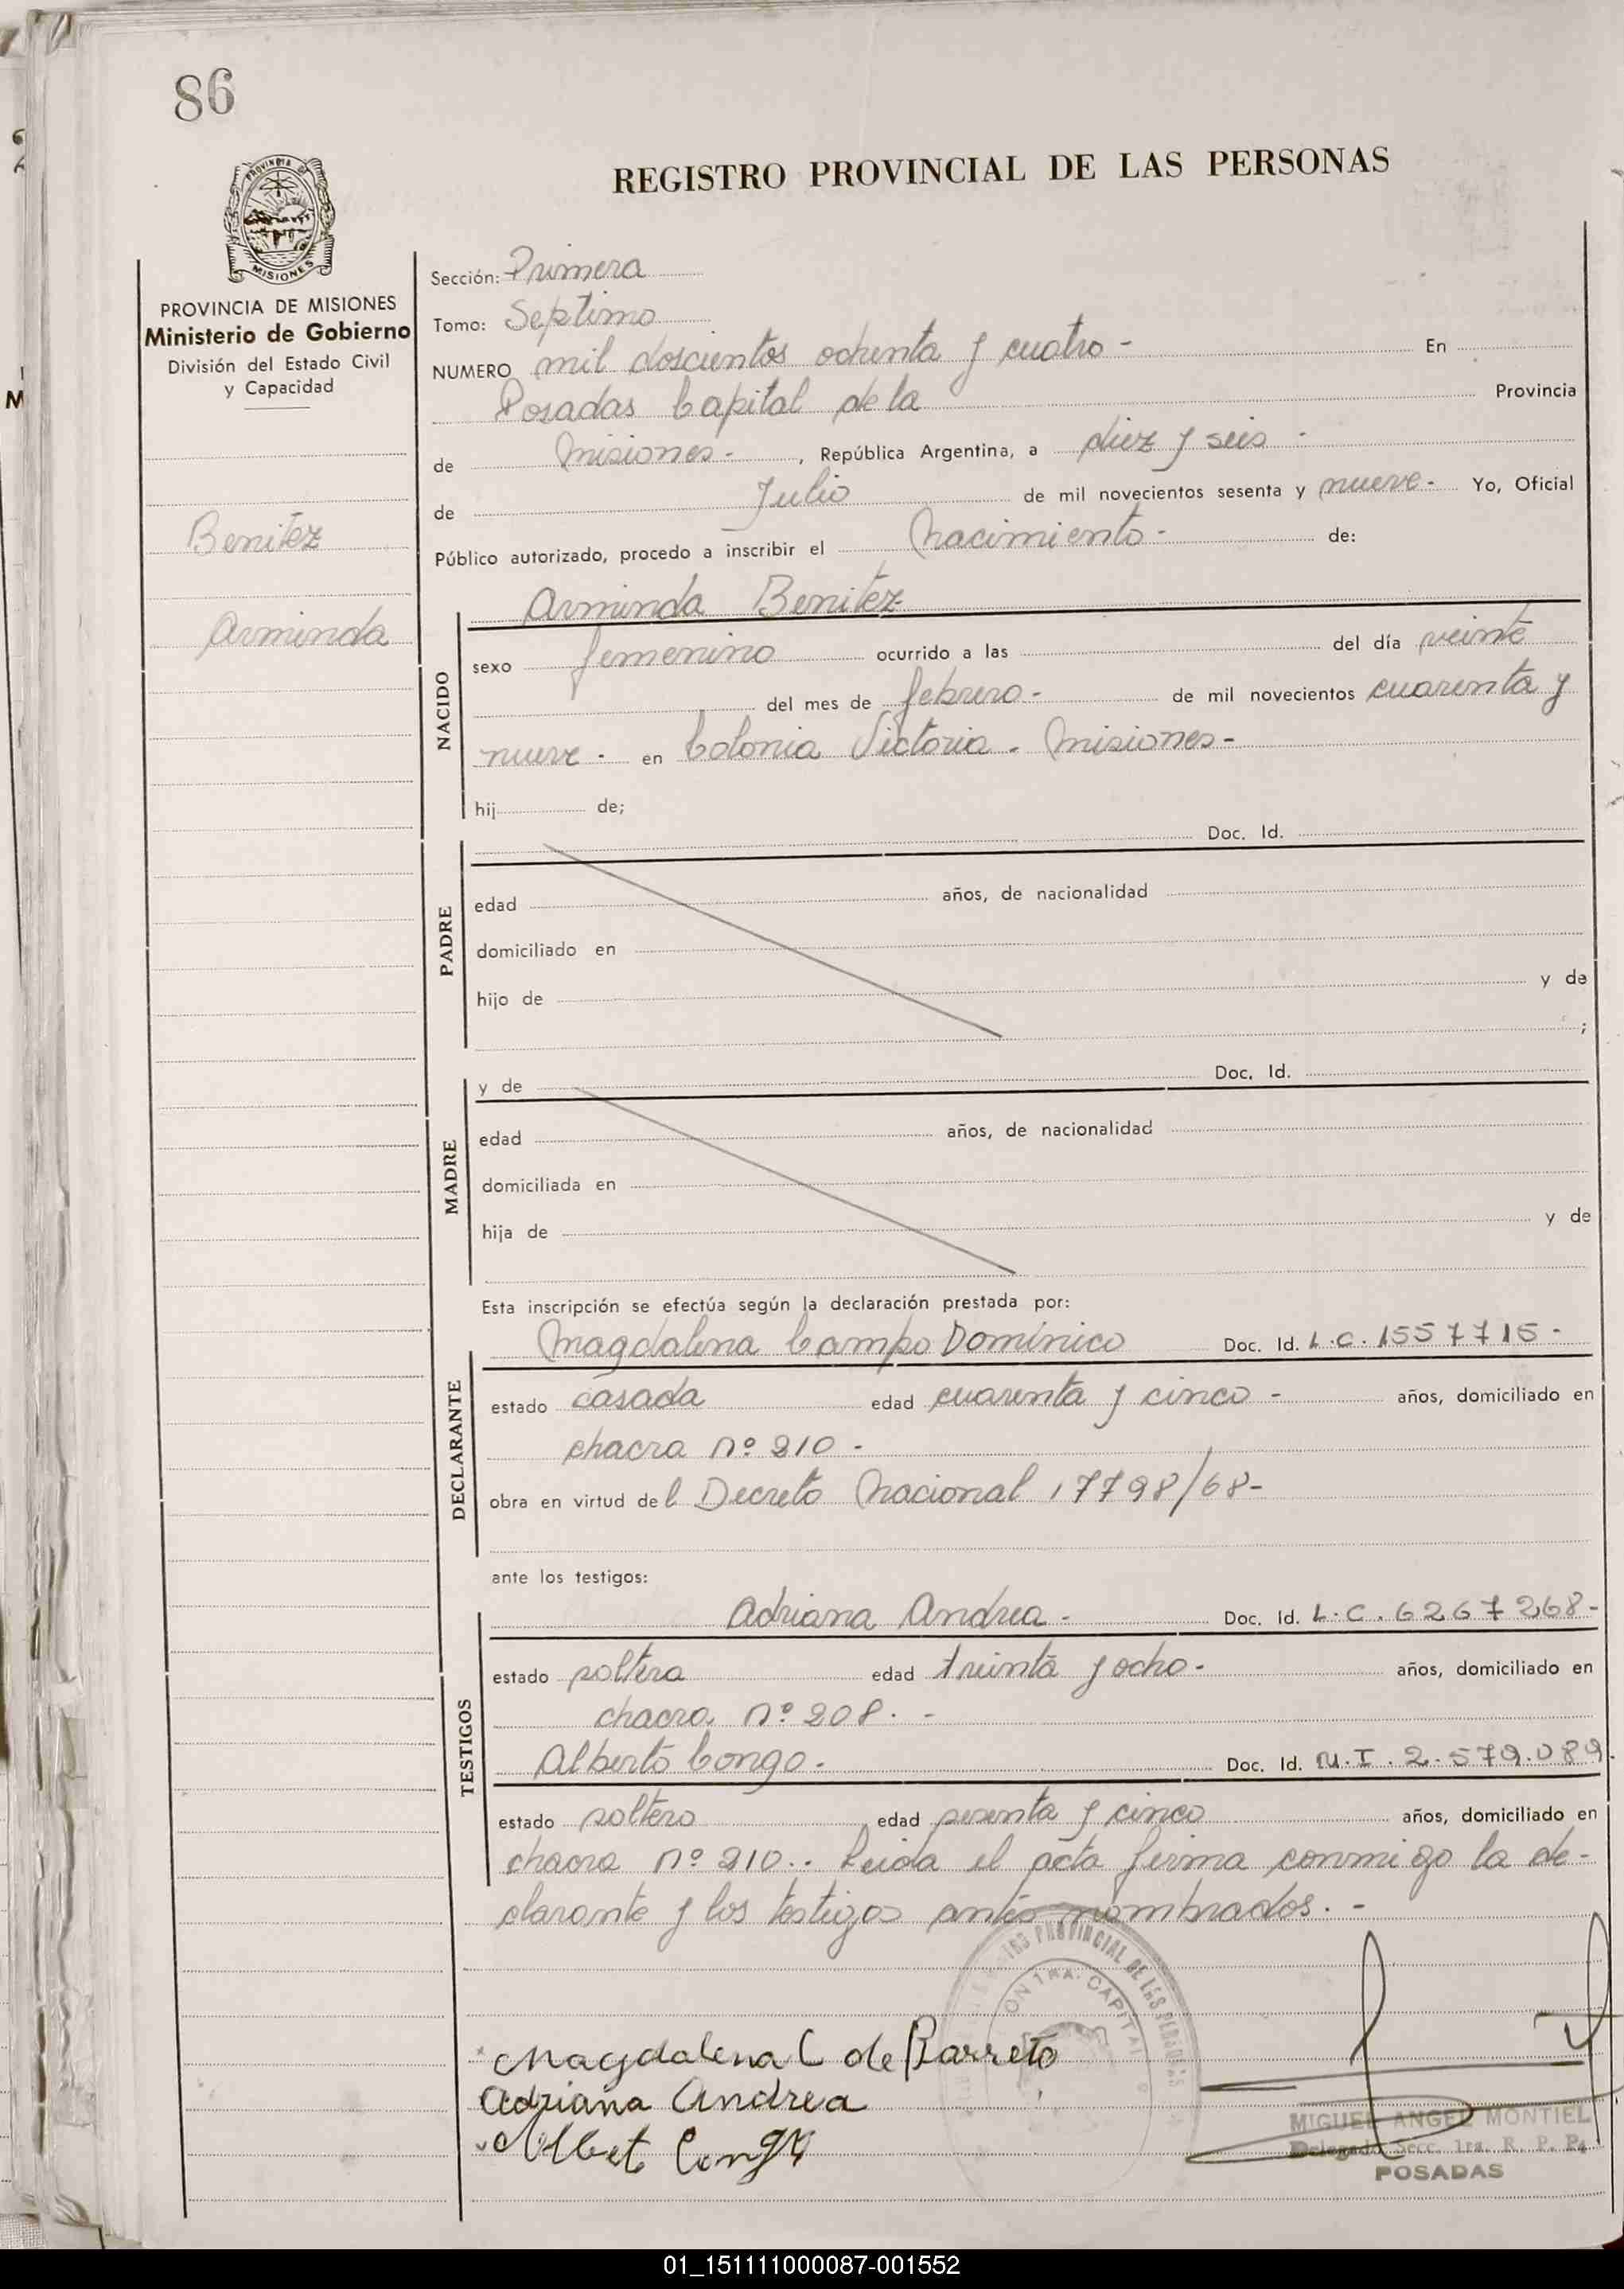 86
REGISTRO PROVINCIAL DE LAS PERSONAS
PROVINCIA DE MISIONES
Ministerio de Gobierno
División del Estado Civil
y Capacidad
Benitez
Arminda
Sección: Primera
Tomo: Septimo
NUMERO mil doscientos ochenta y cuatro - En
Posadas Capital de la Provincia
de Misiones - , República Argentina, a diez y seis -
de Julio de mil novecientos sesenta y nueve - Yo, Oficial
Público autorizado, procedo a inscribir el Nacimiento - de:
NACIDO
Arminda Benitez
sexo femenino ocurrido a las del día veinte
del mes de febrero - de mil novecientos cuarenta y
nueve - en Colonia Victoria - Misiones -
hij de;
PADRE
Doc. Id.
edad años, de nacionalidad
domiciliado en
hijo de y de
;
MADRE
y de Doc. Id.
edad años, de nacionalidad
domiciliada en
hija de y de
Esta inscripción se efectúa según la declaración prestada por:
DECLARANTE
Magdalena Campo Domínico Doc. Id. L.C. 1557715 -
estado casada edad cuarenta y cinco - años, domiciliado en
chacra nº 210 -
obra en virtud del Decreto Nacional 17798/68 -
ante los testigos:
TESTIGOS
Adriana Andrea - Doc. Id. L.C. 6267268 -
estado soltera edad treinta y ocho - años, domiciliado en
chacra nº 208 . -
Alberto Congo - Doc. Id. M.I. 2.579.089.
estado soltero edad sesenta y cinco años, domiciliado en
chacra nº 210 .. Leida el acta firma conmigo la de-
clarante y los testigos antes nombrados. -
REGISTRO PROVINCIAL DE LAS PERSONAS
1RA. CAPITAL
Magdalena C de Barreto
Adriana Andrea
Albert Congo
MIGUEL ANGEL MONTIEL
Delegado Secc. 1ra. R. P. P.
POSADAS
01_151111000087-001552